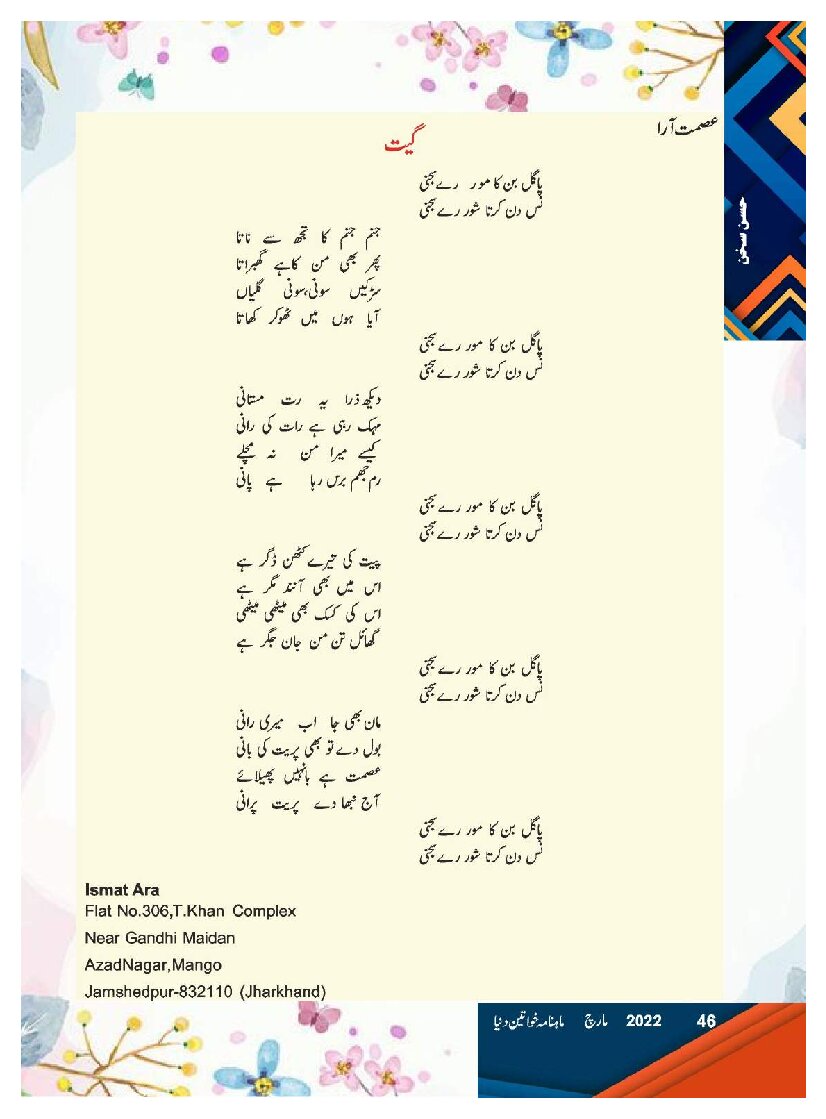 عصمت آرا
گیت
حسن سخن
پاگل بن کا مور رے سجنی
نس دن کرتا شور رے سجنی
جنم جنم کا تجھ سے ناتا
پھر بھی من کاہے گھبراتا
سڑکیں سونی،سونی گلیاں
آیا ہوں میں ٹھوکر کھاتا
پاگل بن کا مور رے سجنی
نس دن کرتا شور رے سجنی
دیکھ ذرا یہ رت مستانی
مہک رہی ہے رات کی رانی
کیسے میرا من نہ مچلے
رم جھم برس رہا ہے پانی
پاگل بن کا مور رے سجنی
نس دن کرتا شور رے سجنی
پیت کی تیرے کٹھن ڈگر ہے
اس میں بھی آنند مگر ہے
اس کی کسک بھی میٹھی میٹھی
گھائل تن من جان جگر ہے
پاگل بن کا مور رے سجنی
نس دن کرتا شور رے سجنی
مان بھی جا اب میری رانی
بول دے تو بھی پریت کی بانی
عصمت ہے بانہیں پھیلائے
آج نبھا دے پریت پرانی
پاگل بن کا مور رے سجنی
نس دن کرتا شور رے سجنی
Ismat Ara
Flat No.306,T.Khan Complex
Near Gandhi Maidan
AzadNagar,Mango
Jamshedpur-832110 (Jharkhand)
ماہنامہ خواتین دنیا مارچ 2022 46